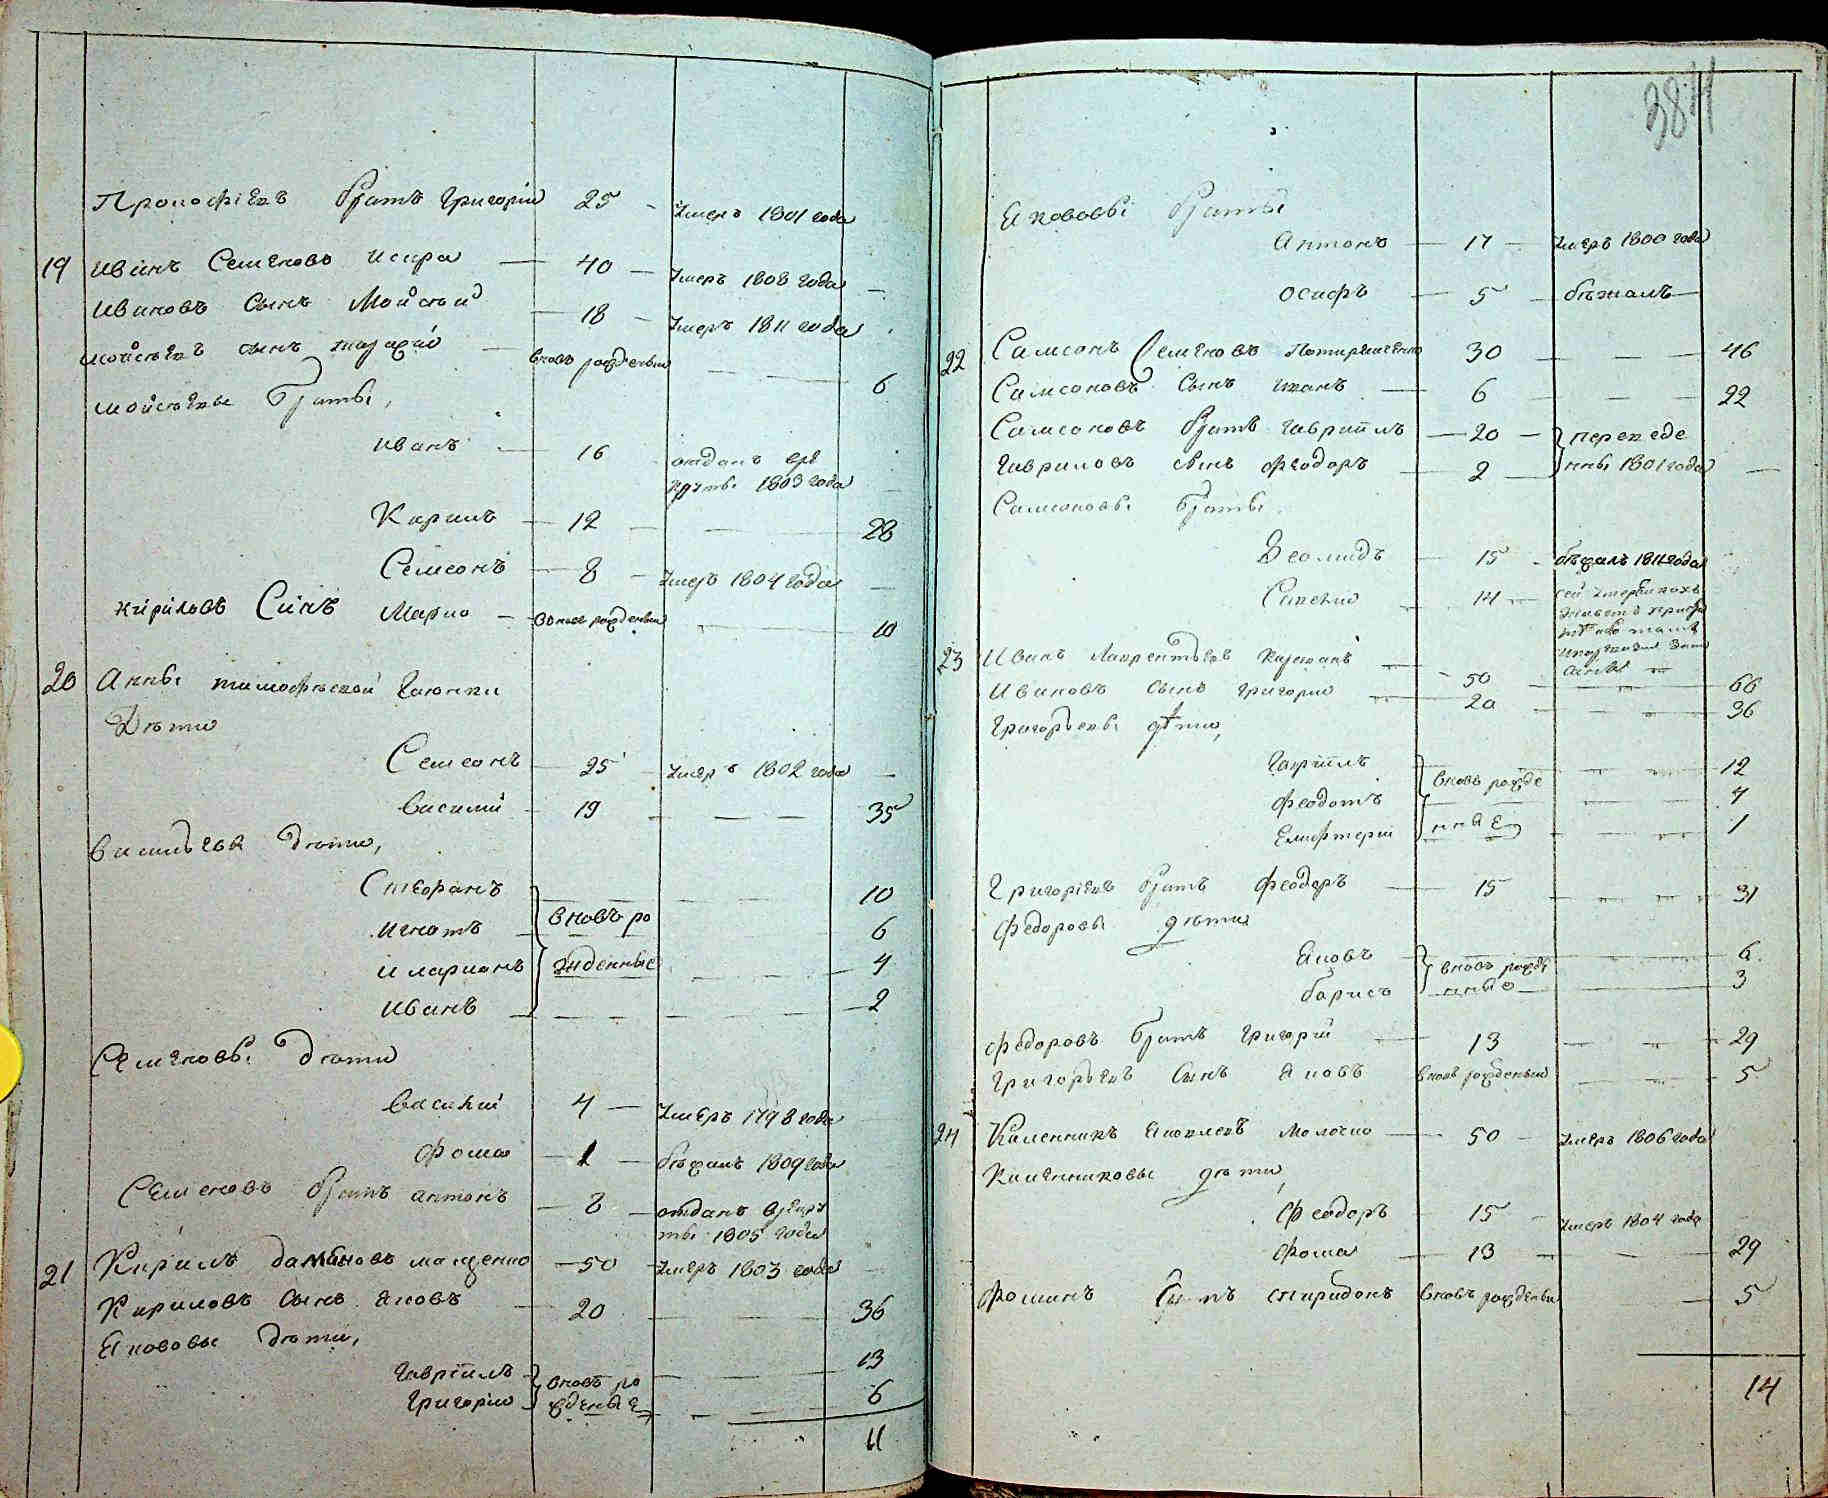 Прокофіевъ братъ Григорій 25 - Умеръ 1801 года
19 Иванъ Семеновъ Искра — 40 — Умеръ 1808 года —
Ивановъ Сынъ Мойсъй — 18 — Умеръ 1811 года
Мойсъевъ сынъ Захарій — вновь рожденый — 6
Мойсъевы Браты,
Иванъ — 16 отданъ врѣ
круты 1803 года
Кирилъ — 12 — 28
Семеонъ — 8 — Умеръ 1804 года —
Кириловъ Синъ Марко — вновь рожденый — 10
20 Анны тимофъевой
Дъти
Семеонъ — 25 — Умеръ 1802 года —
Василий — 19 — 35
Васильевы Дъти,
Стефанъ — 10
Игнатъ — вновь ро 6
Иларионъ жденные 4
Иванъ — 2
Семеновы Дъти
Василий 4 — Умеръ 1798 года
Фома — 1 — бъжалъ 1809 года
Семеновъ братъ антонъ — 8 — отданъ врекру
ты 1805 года
21 Кирилъ Даміяновъ мащенко — 50 — Умеръ 1803 года
Кириловъ Сынъ Яковъ — 20 — 36
Якововы Дъти,
Гавріилъ вновь ро 13
Григорій жденые 6
11
384
Якововы Браты
Антонъ — 17 — Умеръ 1800 года
Осифъ — 5 — бъжалъ —
22 Самсонъ Семеновъ 30 — 46
Самсоновъ Сынъ Иванъ — 6 — 22
Самсоновъ братъ Гавриилъ — 20 — переведе
Гавриловъ сынъ Феодоръ — 2 — нны 1801 года —
Самсоновы Браты
15 - бъжалъ 1811 года
14 —
23 Иванъ Лаврентьевъ — 50 — 66
Ивановъ сынъ Григорій — 20 — 36
Григорьевы дѣти,
Гавріилъ вновь рожде 12
Феодотъ 4
Елифтерій нные 1
Григоріевъ братъ Феодоръ — 15 — 31
Федоровы дъти
Яковъ — вновь рожде 6
борисъ нные 3
Федоровъ братъ Григорій — 13 — 29
Григорьевъ Сынъ Яковъ вновь рожденый — 5
24 Каленникъ Яковлевъ Молочко — 50 — Умеръ 1806 года
Каленниковы дъти,
Феодоръ — 15 — Умеръ 1804 года
Фома — 13 — 29
Фоминъ Сынъ Спиридонъ вновь рожденый — 5
14